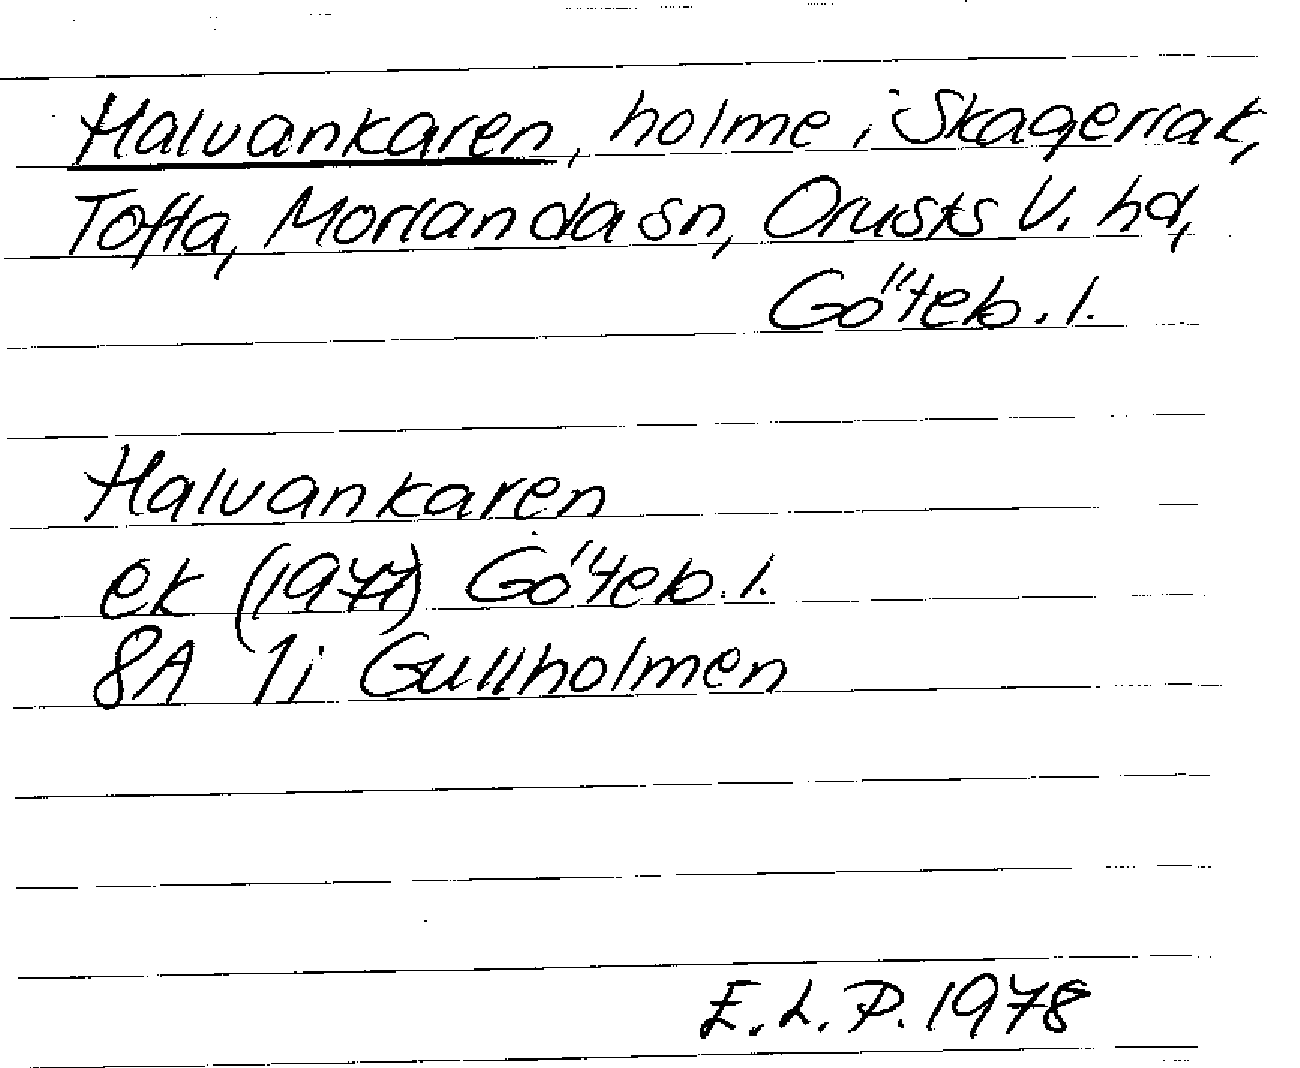 Halvankaren, holme i Skagerrak,
Tofta, Morlanda sn, Orusts V. hd,
Göteb. l.
Halvankaren
ek (1977) Göteb. l.
8A 1i Gullholmen
E.L.P. 1978